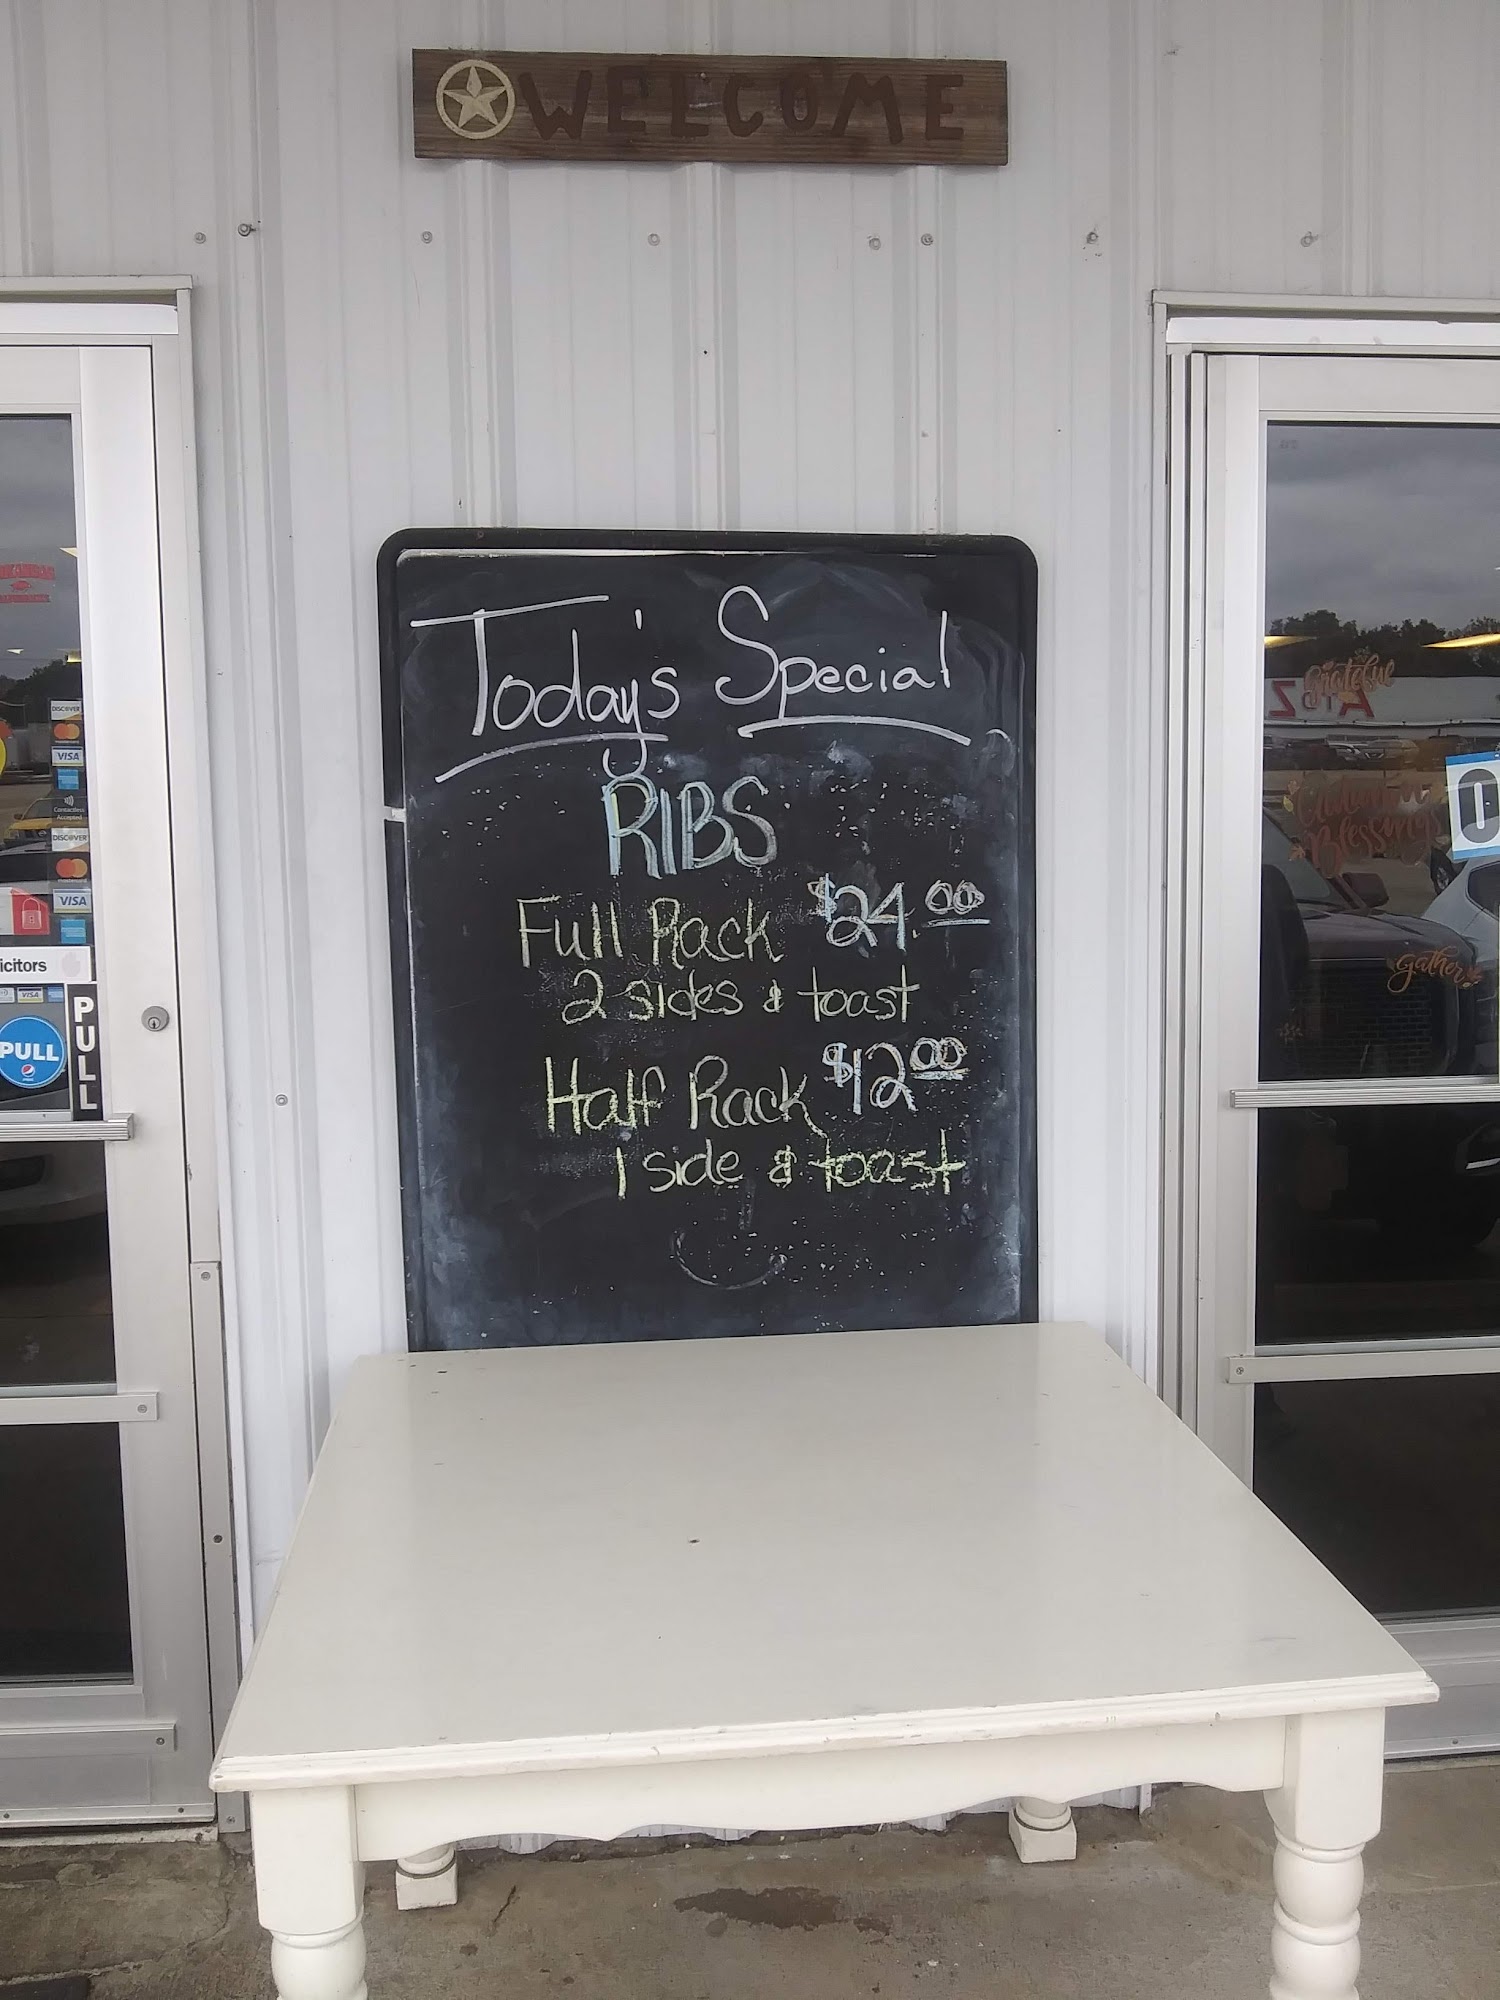 WELCOME
Today's Special
RIBS
Full Rack $24.00
2 sides & toast
Half Rack $12.00
1 side & toast
DISCOVER
VISA
Contactless
Accepted
DISCOVER
VISA
icitors
VISA
PULL
PULL
Grateful
Blessings
gather